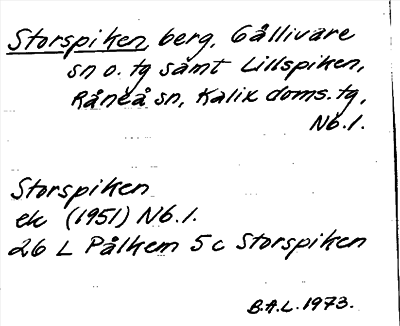 Storspiken, berg, Gällivare
sn o. tg samt Lillspiken,
Råneå sn, Kalix doms. tg,
Nb.l.
Storspiken
ek (1951) Nb.l.
26 L Pålkem 5 c Storspiken
B.A.L. 1973.